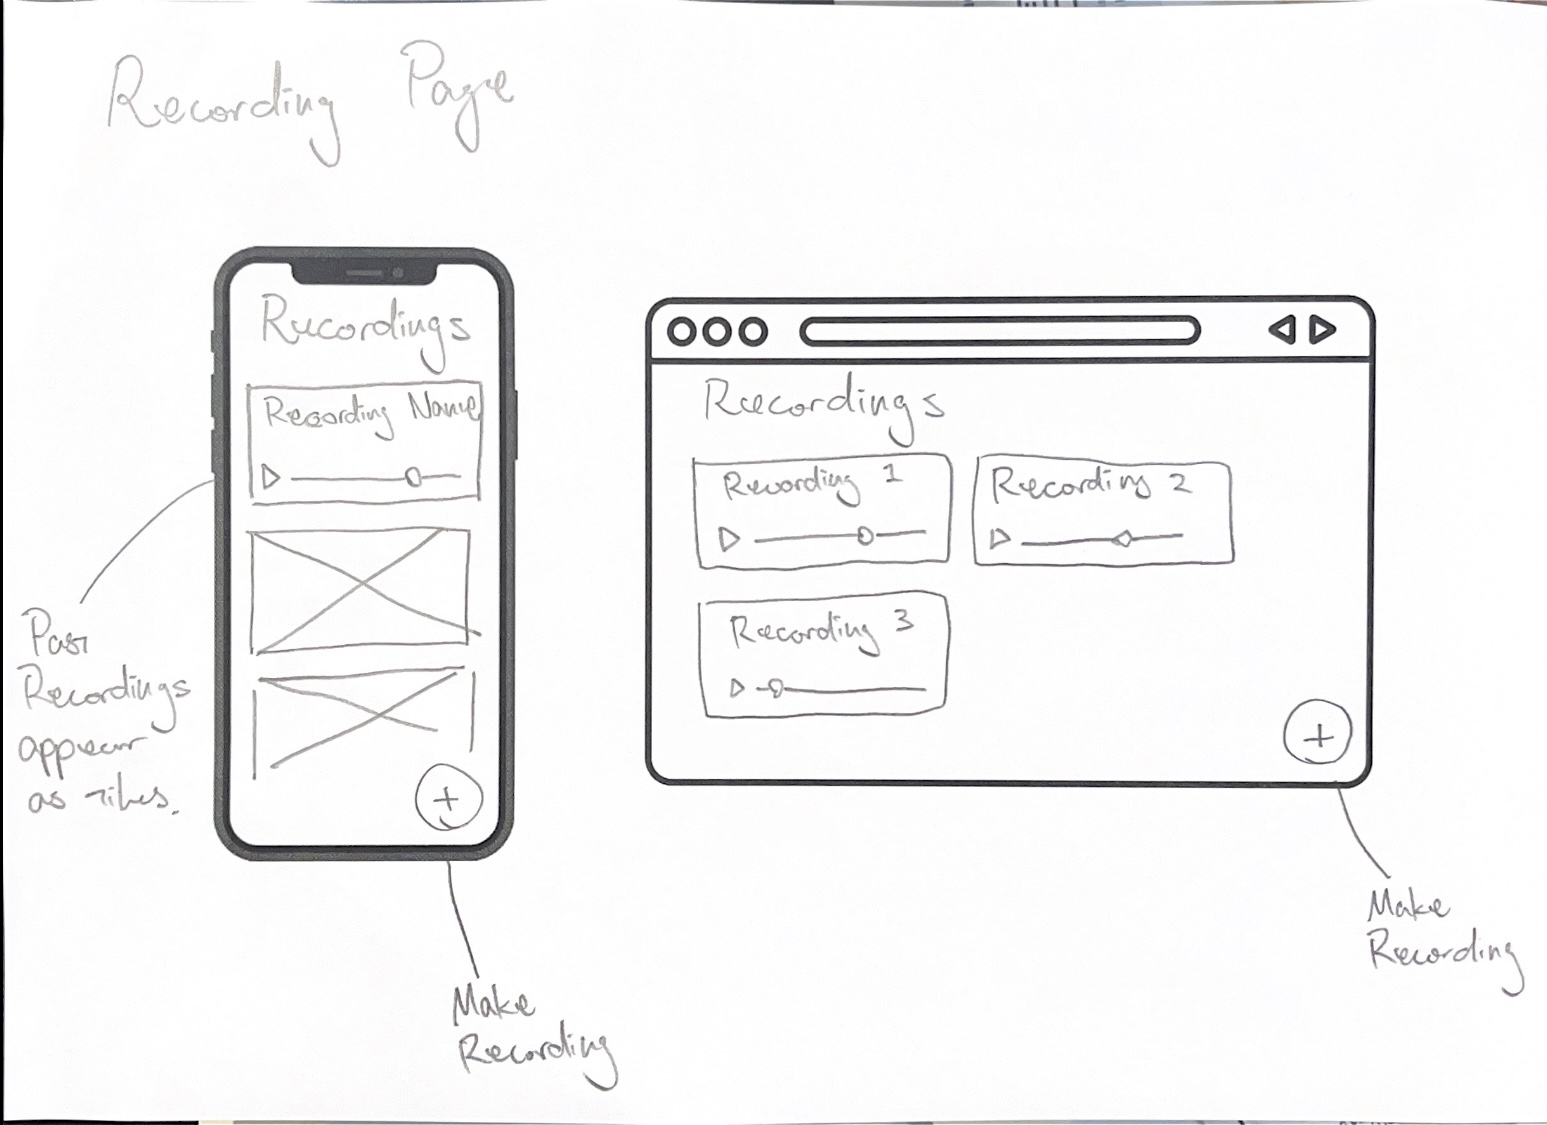 Recording Page
Recordings
Recording Name
Past
Recordings
appear
as tiles.
Make
Recording
Recordings
Recording 1
Recording 2
Recording 3
Make
Recording